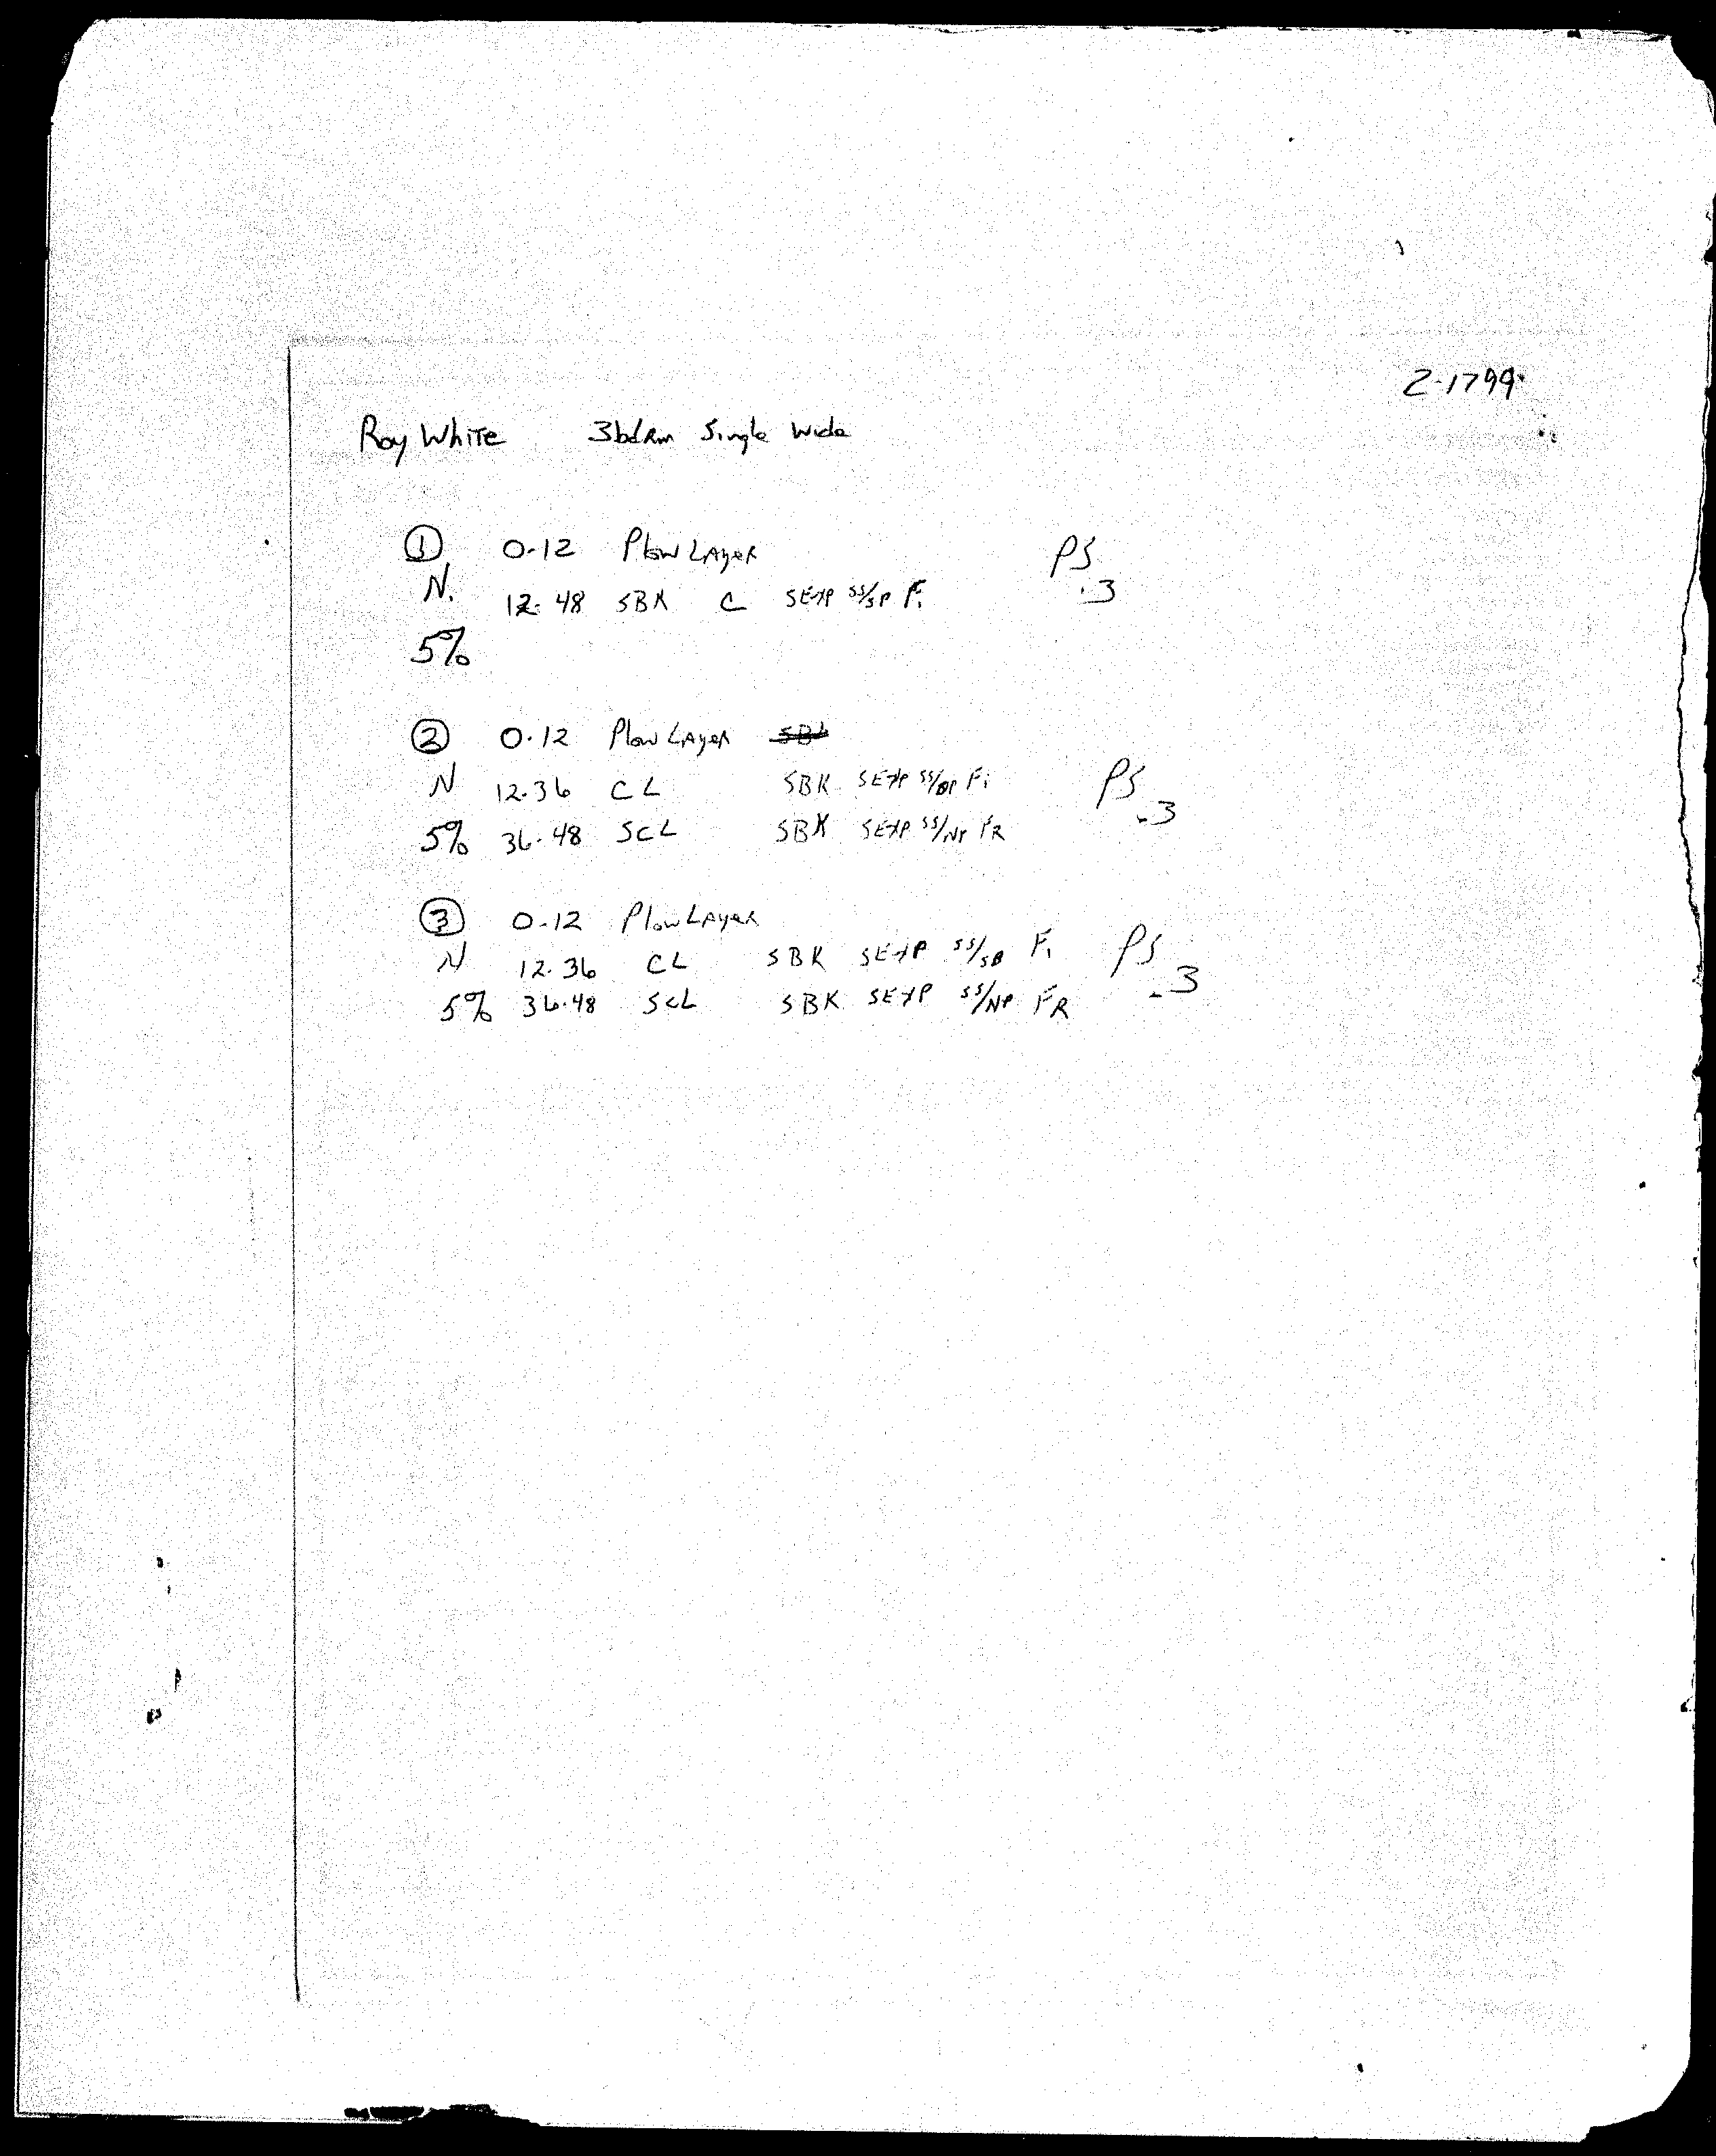 2-17-99
Roy White 3bdRm Single Wide
① 0-12 Plow Layer PS
N. 12-48 SBK C SEXP SS/SP Fi .3
5%
② 0-12 Plow Layer
N 12-36 CL SBK SEXP SS/SP Fi PS
5% 36-48 SCL SBK SEXP SS/NP FR .3
③ 0-12 Plow Layer
N 12-36 CL SBK SEXP SS/SP Fi PS
5% 36-48 SCL SBK SEXP SS/NP FR .3